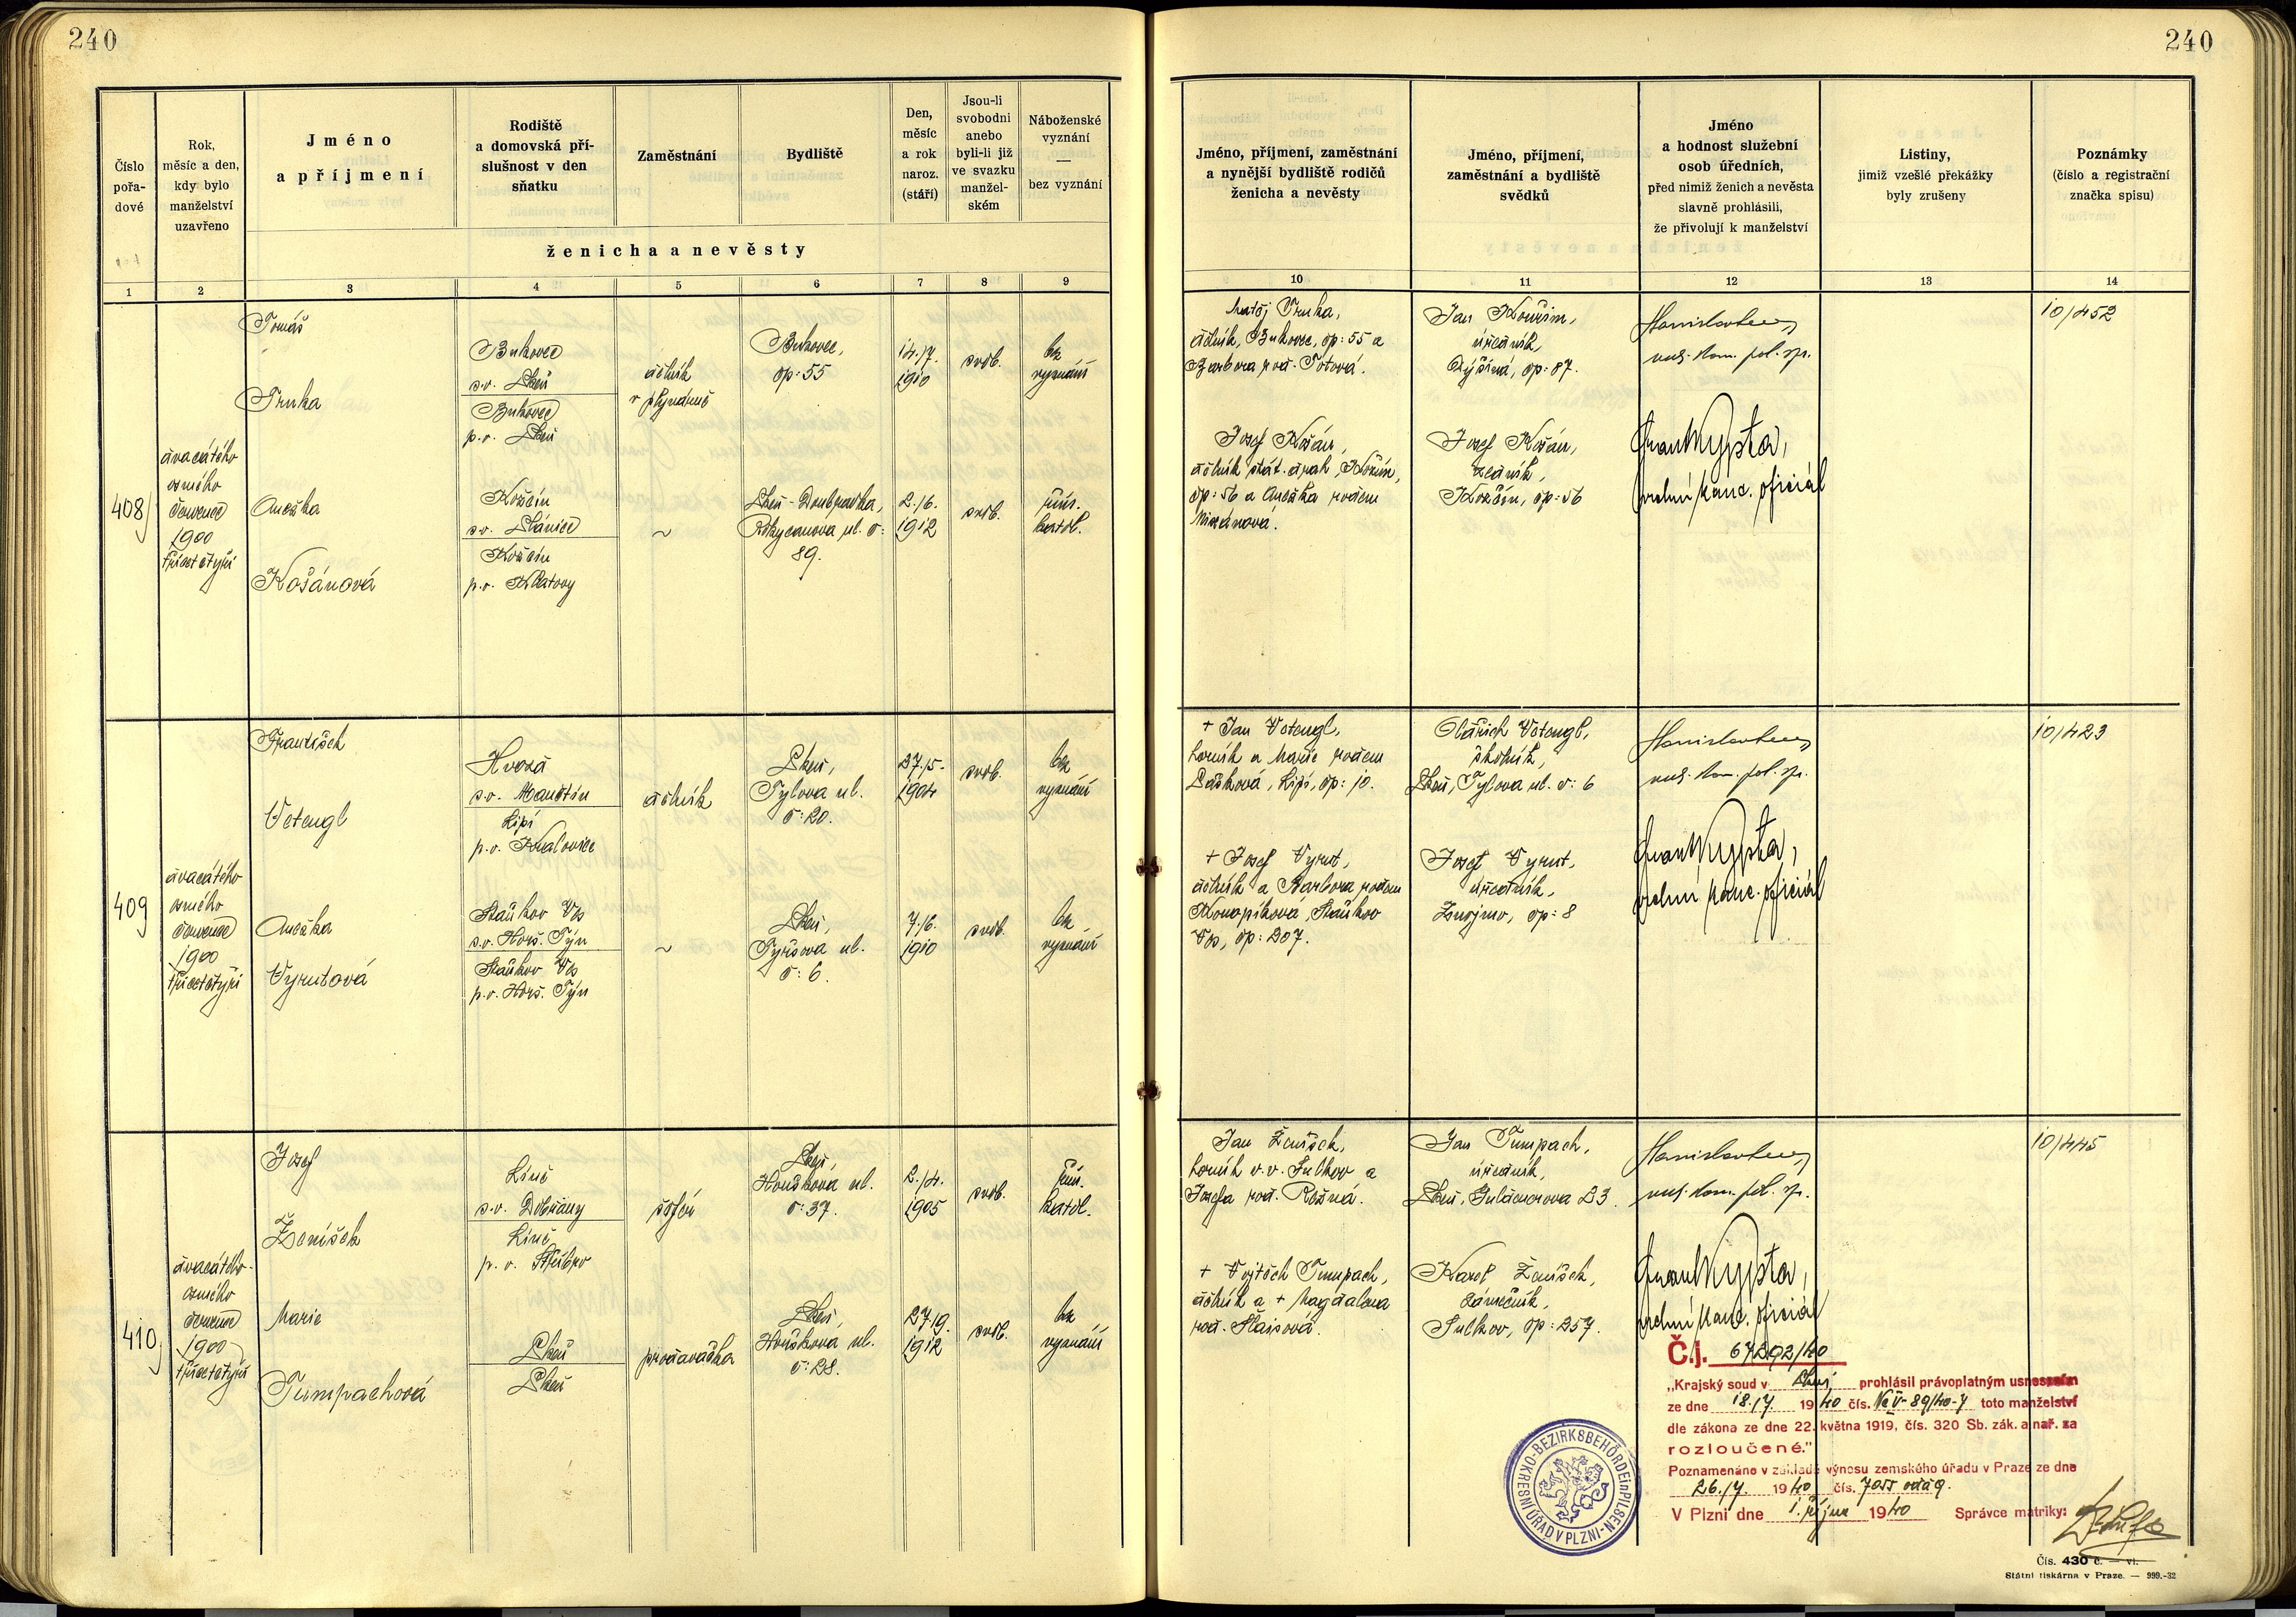 240
240
Číslo
pořa-
dové
Rok,
měsíc a den,
kdy bylo
manželství
uzavřeno
Jméno
a příjmení
Rodiště
a domovská pří-
slušnost v den
sňatku
Zaměstnání
Bydliště
Den,
měsíc
a rok
naroz.
(stáří)
Jsou-li
svobodni
anebo
byli-li již
ve svazku
manžel-
ském
Náboženské
vyznání
—
bez vyznání
ženicha a nevěsty
Jméno, příjmení, zaměstnání
a nynější bydliště rodičů
ženicha a nevěsty
Jméno, příjmení,
zaměstnání a bydliště
svědků
Jméno
a hodnost služební
osob úředních,
před nimiž ženich a nevěsta
slavně prohlásili,
že přivolují k manželství
Listiny,
jimiž vzešlé překážky
byly zrušeny
Poznámky
(číslo a registrační
značka spisu)
1 2 3 4 5 6 7 8 9 10 11 12 13 14
408
dvacátého
osmého
července
1900
třicetčtyři
Tomáš
Trnka
Bukovec
s.o. Plzeň
Bukovec
p.o. Plzeň
dělník
v plynárně
Bukovec,
čp: 55
14./7.
1910
svob.
bez
vyznání
Anežka
Košánová
s.o. Plánice
p.o. Klatovy
~
Plzeň-Doubravka,
Rokycanova ul. č:
89.
2./6.
1912
svob.
řím.
katol.
Matěj Trnka,
dělník, Bukovec, čp: 55 a
Barbora roz. Totová.
Josef Košán,
dělník stát. drah,
čp: 56 a Anežka rozen
Jan Kouřim,
úředník,
Dýšiná, čp: 87.
Josef Košán,
zedník,
čp: 56
Stanislav
rad. kom. pol. sp.
vrchní kanc. oficiál
10/452
409
dvacátého
osmého
července
1900
třicetčtyři
František
Votengl
Hvozd
s.o. Manětín
Lipí
p.o. Kralovice
dělník
Plzeň,
Tylova ul.
č: 20.
27./5.
1904
svob.
bez
vyznání
Anežka
Vyrutová
Staňkov Ves
s.o. Horš. Týn
Staňkov Ves
p.o. Horš. Týn
~
Plzeň,
Tyršova ul.
č: 6.
7./6.
1910
svob.
bez
vyznání
+ Jan Votengl,
horník a Marie rozen
Lipí, čp: 10.
+ Josef Vyrut,
dělník a Barbora rozen
Konopíková, Staňkov
Ves, čp: 207.
Oldřich Votengl,
Plzeň, Tylova ul. č: 6
Josef Vyrut,
úředník,
Znojmo, čp: 8
Stanislav
rad. kom. pol. sp.
vrchní kanc. oficiál
10/423
410
dvacátého
osmého
července
1900
třicetčtyři
Josef
Ženíšek
Líně
s.o. Dobřany
Líně
p.o. Stříbro
šofér
Plzeň,
Houškova ul.
č: 37.
2./4.
1905
svob.
řím.
katol.
Marie
Tumpachová
Plzeň
Plzeň
prodavačka
Plzeň,
Houškova ul.
č: 28.
27./9.
1912
svob.
bez
vyznání
Jan Ženíšek,
horník v.v. Sulkov a
Josefa roz. Rožná.
+ Vojtěch Tumpach,
dělník a + Magdalena
roz. Šlaisová.
Jan Tumpach,
úředník,
Plzeň, Guldenerova 23.
Karel Ženíšek,
zámečník,
Sulkov, čp: 257.
Stanislav
rad. kom. pol. sp.
vrchní kanc. oficiál
10/445
Č.j. 67292/40
„Krajský soud v Plzni prohlásil právoplatným usnesením
ze dne 18./7. 1940 čís. Nc V-89/40-7 toto manželství
dle zákona ze dne 22. května 1919, čís. 320 Sb. zák. a nař. za
rozloučené."
Poznamenáno v základě výnosu zemského úřadu v Praze ze dne
26./7. 1940 čís. 7055 odd 9.
V Plzni dne 1. října 1940 Správce matriky:
BEZIRKSBEHÖRDE in PILSEN - OKRESNÍ ÚŘAD V PLZNI
Čís. 430 č. — vl.
Státní tiskárna v Praze. — 999.-32